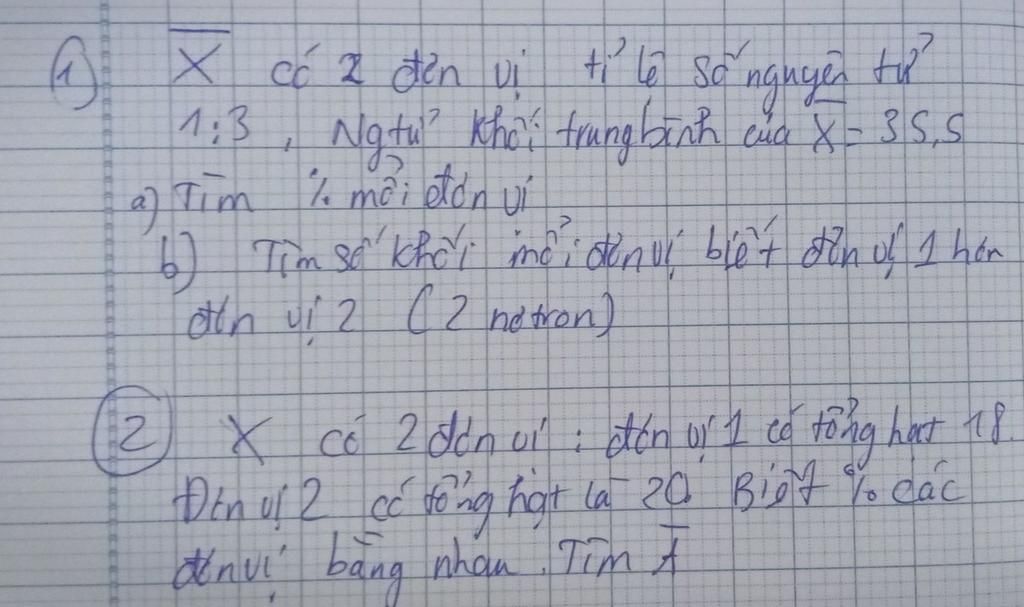 ① X̅ có 2 đồn vị tỉ lệ số nguyên tử
1:3, Ngtử khối trungbình của X̅ = 35,5
a) Tìm % mỗi đồn vị
b) Tìm số khối mỗi đồnvị, biết đồn vị 1 hơn
đồn vị 2 (2 nơtron)
② X có 2 đồn vị : đồn vị 1 có tổng hạt 18.
Đồn vị 2 có tổng hạt là 20. Biết % các
đồnvị bằng nhau. Tìm A̅